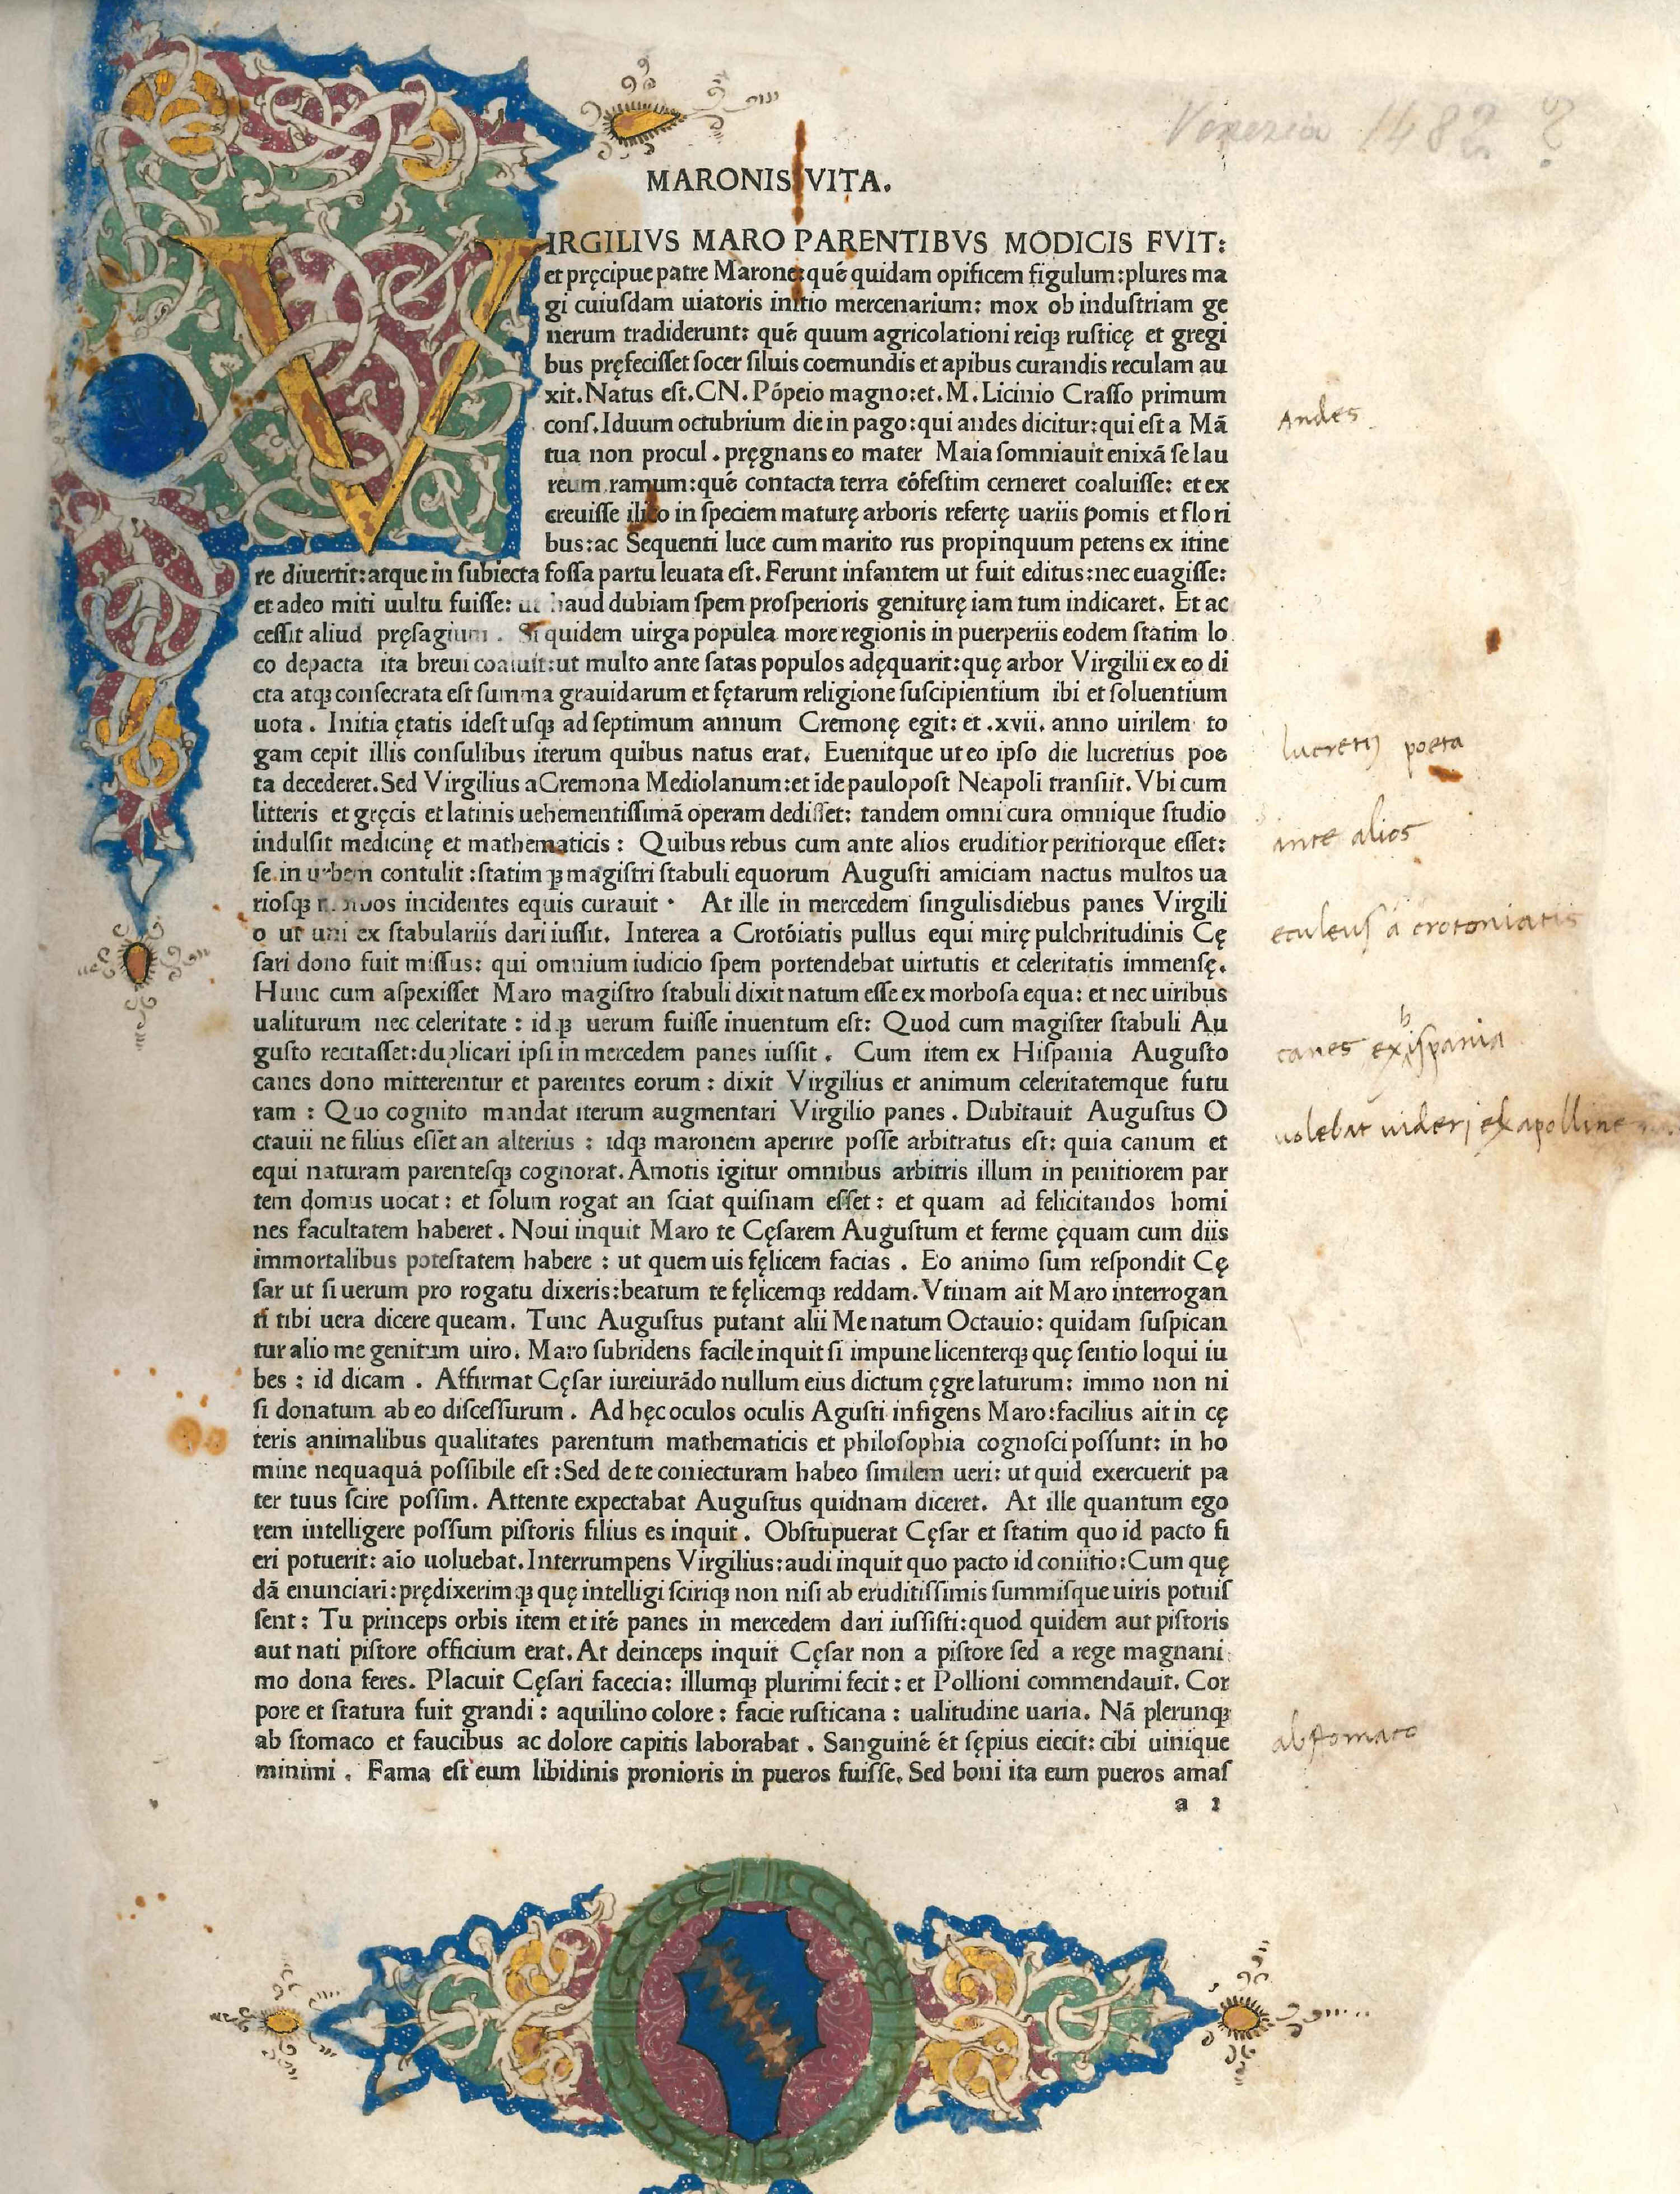 Venezia 1482 ?
MARONIS VITA.
VIRGILIVS MARO PARENTIBVS MODICIS FVIT:
et pręcipue patre Marone: quē quidam opificem figulum: plures ma
gi cuiuſdam uiatoris initio mercenarium: mox ob induſtriam ge
nerum tradiderunt: quē quum agricolationi reiqꝫ ruſticę et gregi
bus pręfeciſſet ſocer ſiluis coemundis et apibus curandis reculam au
xit. Natus eſt. CN. Pōpeio magno: et. M. Licinio Craſſo primum
conſ. Iduum octubrium die in pago: qui andes dicitur: qui eſt a Mā
Andes
tua non procul. pręgnans eo mater Maia ſomniauit enixā ſe lau
reum ramum: quē contacta terra cōfeſtim cerneret coaluiſſe: et ex
creuiſſe ilico in ſpeciem maturę arboris refertę uariis pomis et flori
bus: ac Sequenti luce cum marito rus propinquum petens ex itine
re diuertit: atque in ſubiecta foſſa partu leuata eſt. Ferunt infantem ut fuit editus: nec euagiſſe:
et adeo miti uultu fuiſſe: ut haud dubiam ſpem proſperioris geniturę iam tum indicaret. Et ac
ceſſit aliud pręſagium. Si quidem uirga populea more regionis in puerperiis eodem ſtatim lo
co depacta ita breui coaluit: ut multo ante ſatas populos adęquarit: quę arbor Virgilii ex eo di
cta atqꝫ conſecrata eſt ſumma grauidarum et fętarum religione ſuſcipientium ibi et ſoluentium
uota. Initia ętatis ideſt uſqꝫ ad ſeptimum annum Cremonę egit: et .xvii. anno uirilem to
gam cepit illis conſulibus iterum quibus natus erat. Euenitque ut eo ipſo die lucretius poe
lucretiꝰ poeta
ta decederet. Sed Virgilius a Cremona Mediolanum: et ide paulopoſt Neapoli tranſiit. Vbi cum
litteris et gręcis et latinis uehementiſſimā operam dediſſet: tandem omni cura omnique ſtudio
ante alios
indulſit medicinę et mathematicis: Quibus rebus cum ante alios eruditior peritiorque eſſet:
ſe in urbem contulit: ſtatimqꝫ magiſtri ſtabuli equorum Auguſti amiciam nactus multos ua
rioſqꝫ morbos incidentes equis curauit. At ille in mercedem ſingulisdiebus panes Virgili
o ut uni ex ſtabulariis dari iuſſit. Interea a Crotōiatis pullus equi mirę pulchritudinis Cę
eculeuſ a crotoniatis
ſari dono fuit miſſus: qui omnium iudicio ſpem portendebat uirtutis et celeritatis immenſę.
Hunc cum aſpexiſſet Maro magiſtro ſtabuli dixit natum eſſe ex morboſa equa: et nec uiribus
ualiturum nec celeritate: idqꝫ uerum fuiſſe inuentum eſt: Quod cum magiſter ſtabuli Au
guſto recitaſſet: duplicari ipſi in mercedem panes iuſſit. Cum item ex Hiſpania Auguſto
canes ex hiſpania
canes dono mitterentur et parentes eorum: dixit Virgilius et animum celeritatemque futu
ram: Quo cognito mandat iterum augmentari Virgilio panes. Dubitauit Auguſtus O
uolebat uideri ex apolline
ctauii ne filius eſſet an alterius: idqꝫ maronem aperire poſſe arbitratus eſt: quia canum et
equi naturam parenteſqꝫ cognorat. Amotis igitur omnibus arbitris illum in penitiorem par
tem domus uocat: et ſolum rogat an ſciat quiſnam eſſet: et quam ad felicitandos homi
nes facultatem haberet. Noui inquit Maro te Cęſarem Auguſtum et ferme ęquam cum diis
immortalibus poteſtatem habere: ut quem uis fęlicem facias. Eo animo ſum reſpondit Cę
ſar ut ſi uerum pro rogatu dixeris: beatum te fęlicemqꝫ reddam. Vtinam ait Maro interrogan
ti tibi uera dicere queam. Tunc Auguſtus putant alii Me natum Octauio: quidam ſuſpican
tur alio me genitum uiro. Maro ſubridens facile inquit ſi impune licenterqꝫ quę ſentio loqui iu
bes: id dicam. Affirmat Cęſar iureiurādo nullum eius dictum ęgre laturum: immo non ni
ſi donatum ab eo diſceſſurum. Ad hęc oculos oculis Aguſti infigens Maro: facilius ait in cę
teris animalibus qualitates parentum mathematicis et philoſophia cognoſci poſſunt: in ho
mine nequaquā poſſibile eſt: Sed de te coniecturam habeo ſimilem ueri: ut quid exercuerit pa
ter tuus ſcire poſſim. Attente expectabat Auguſtus quidnam diceret. At ille quantum ego
rem intelligere poſſum piſtoris filius es inquit. Obſtupuerat Cęſar et ſtatim quo id pacto fi
eri potuerit: aīo uoluebat. Interrumpens Virgilius: audi inquit quo pacto id coniitio: Cum quę
dā enunciari: prędixerimqꝫ quę intelligi ſciriqꝫ non niſi ab eruditiſſimis ſummiſque uiris potuiſ
ſent: Tu princeps orbis item et itē panes in mercedem dari iuſſiſti: quod quidem aut piſtoris
aut nati piſtore officium erat. At deinceps inquit Cęſar non a piſtore ſed a rege magnani
mo dona feres. Placuit Cęſari facecia: illumqꝫ plurimi fecit: et Pollioni commendauit. Cor
pore et ſtatura fuit grandi: aquilino colore: facie ruſticana: ualitudine uaria. Nā plerunqꝫ
ab ſtomaco et faucibus ac dolore capitis laborabat. Sanguinē ēt ſępius eiecit: cibi uinique
ab ſtomaco
minimi. Fama eſt eum libidinis pronioris in pueros fuiſſe. Sed boni ita eum pueros amaſ
a 1